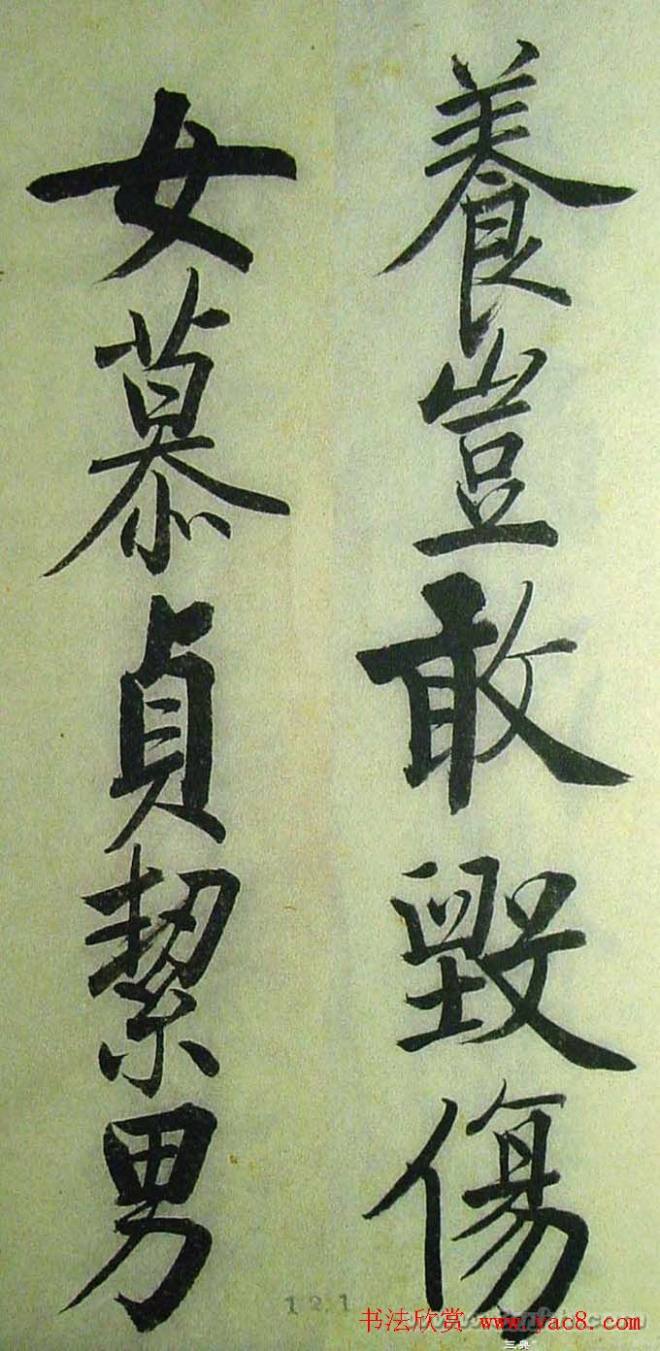 養豈敢毀傷
女慕貞絜男
121
书法欣赏 www.yac8.com